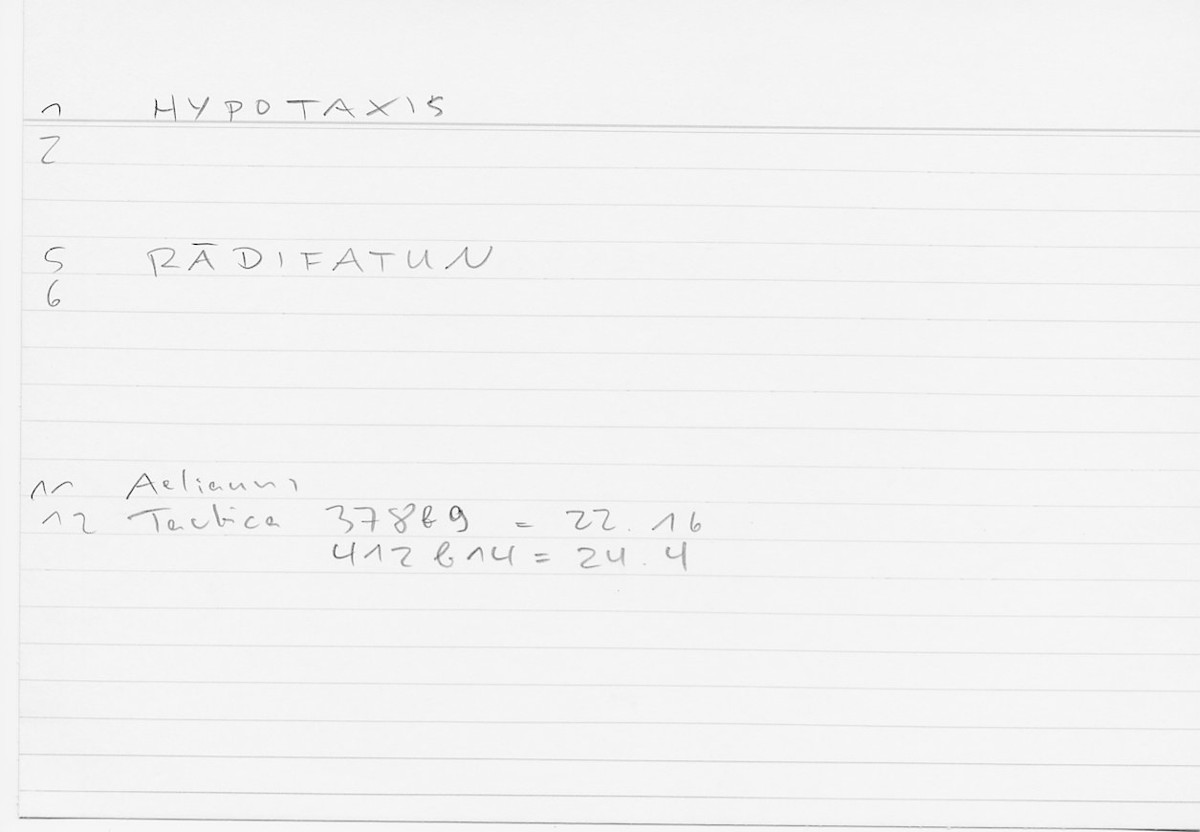 1 HYPOTAXIS
2
5 RĀDIFATUN
6
11 Aelianus
12 Tactica 378b9 = 22.16
412b14 = 24.4